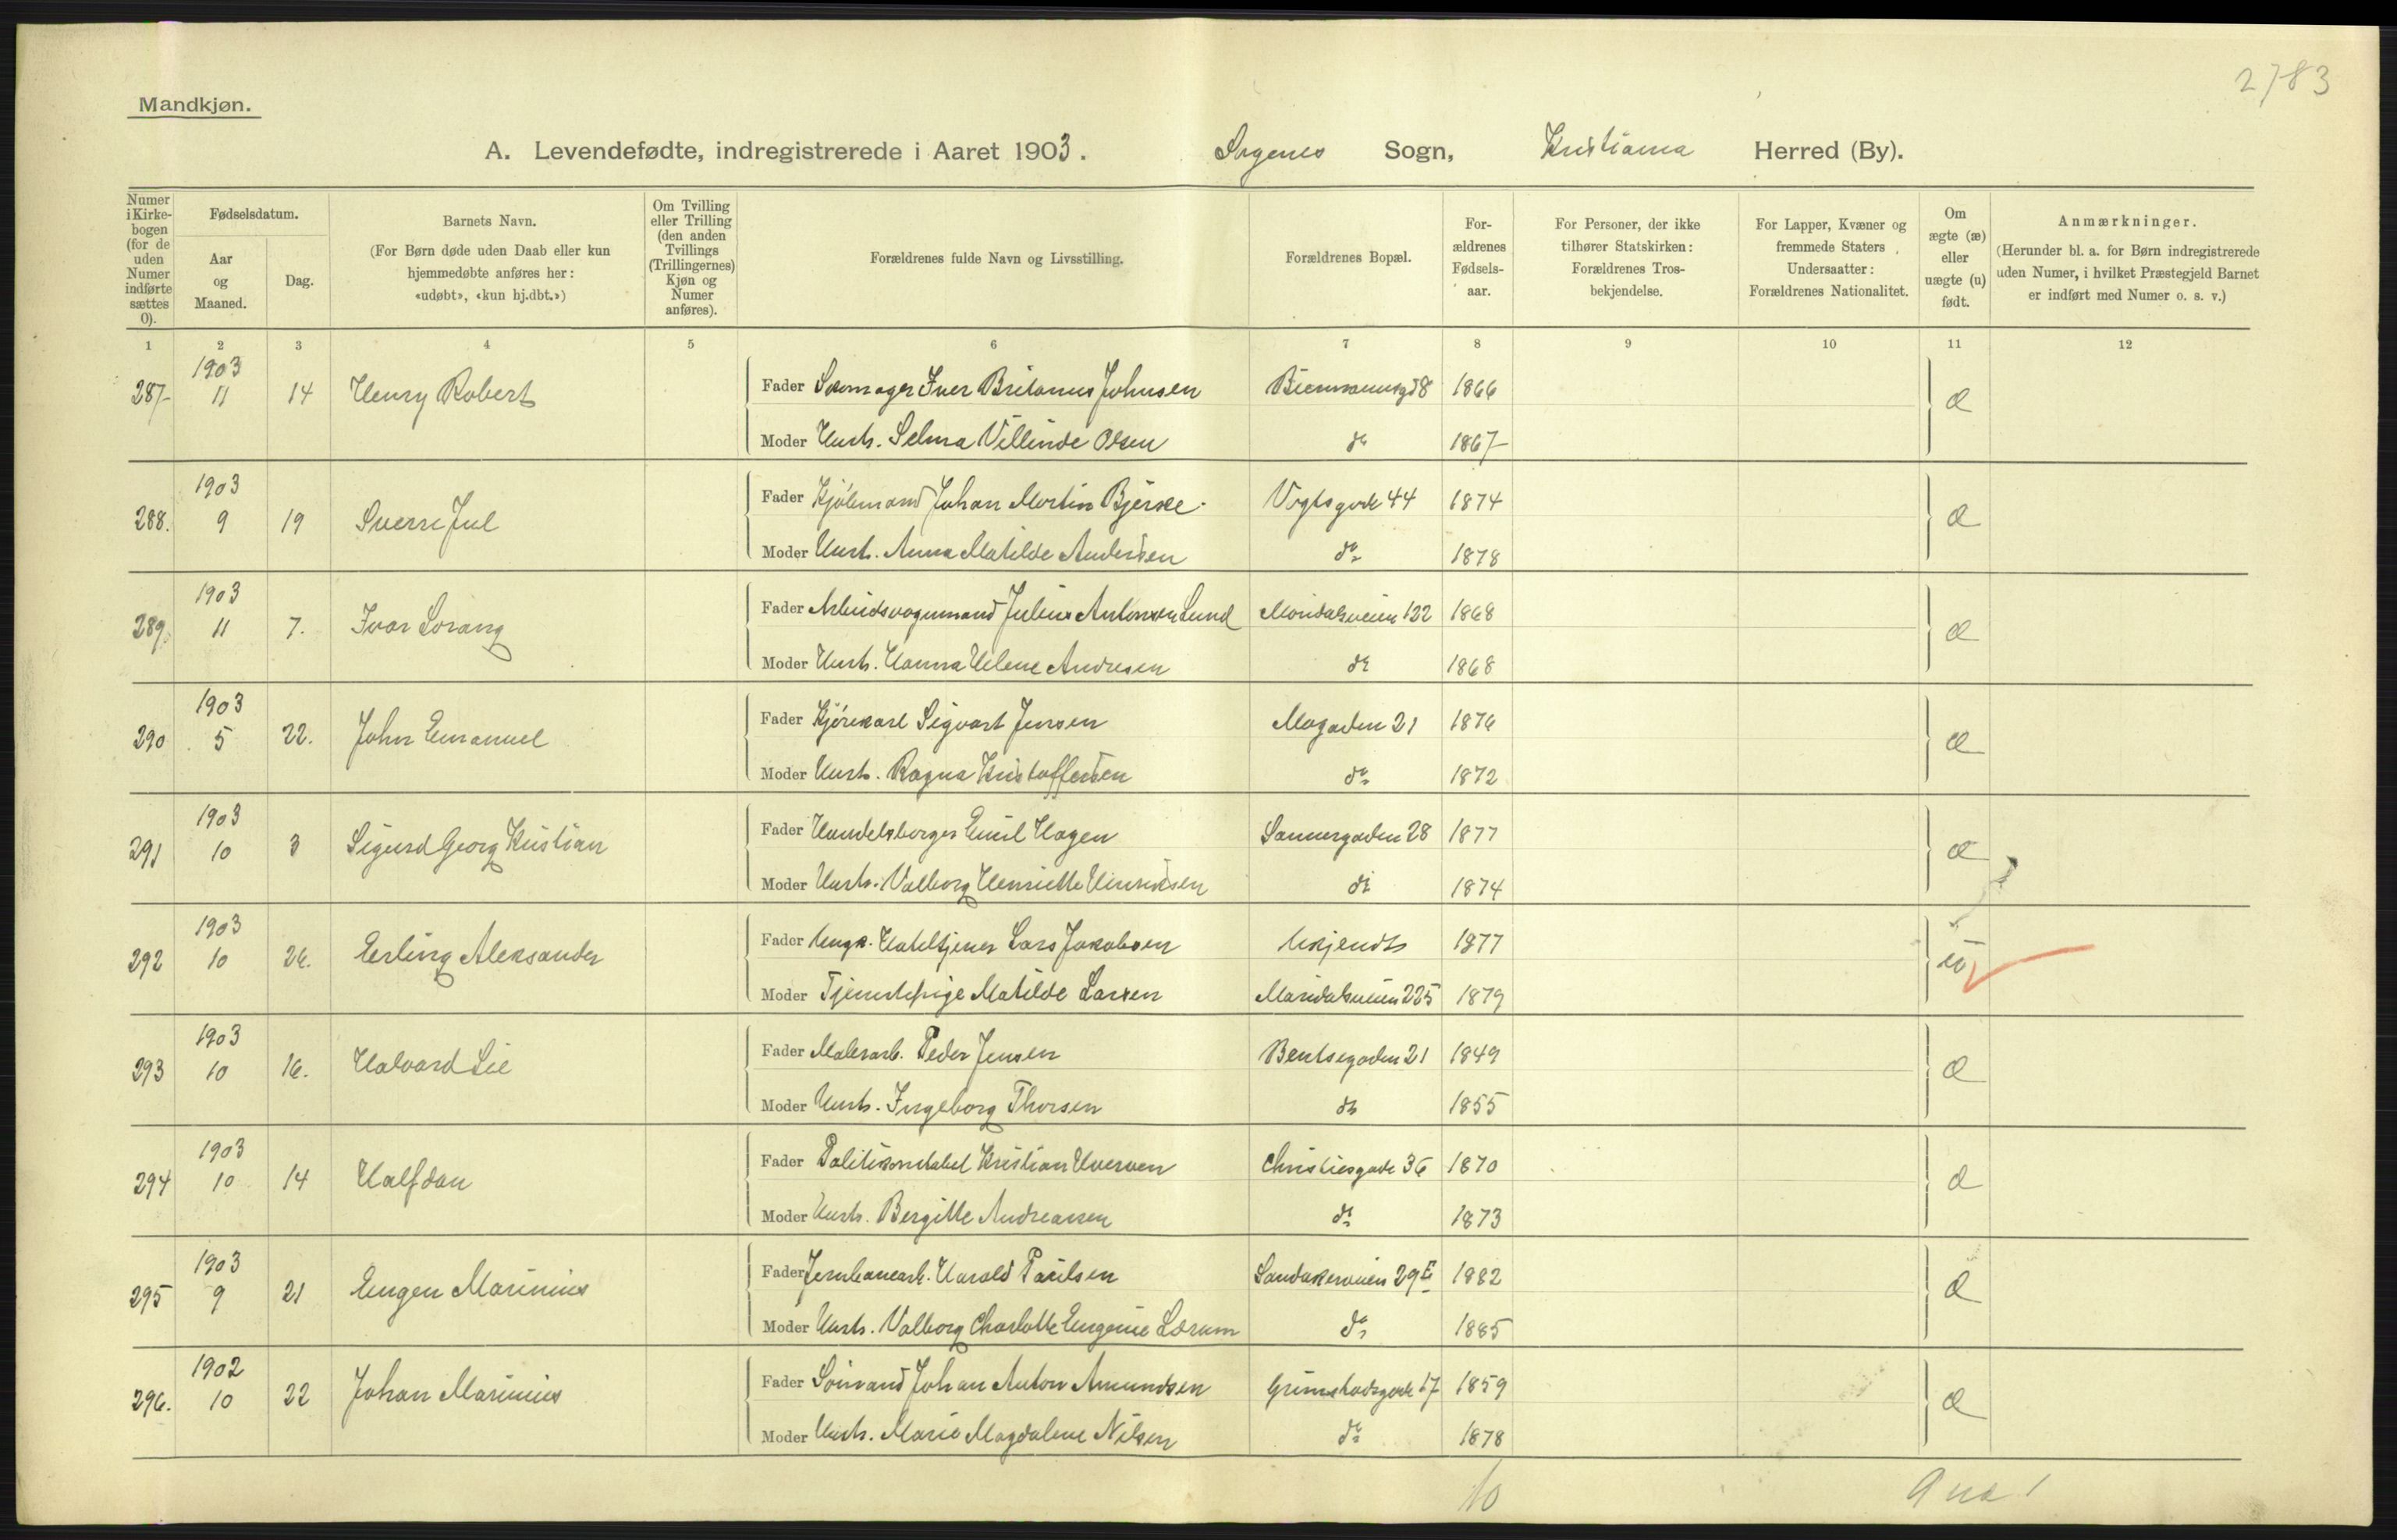 2783
Mandkjøn.
A. Levendefødte, indregistrerede i Aaret 1903. Sagenes Sogn, Kristiania Herred (By).
Numer i Kirkebogen (for de uden Numer indførte sættes 0).
Fødselsdatum.
Aar og Maaned.
Dag.
Barnets Navn.
(For Børn døde uden Daab eller kun hjemmedøbte anføres her: «udøbt», «kun hj.dbt.»)
Om Tvilling eller Trilling (den anden Tvillings (Trillingernes) Kjøn og Numer anføres).
Forældrenes fulde Navn og Livsstilling.
Forældrenes Bopæl.
Forældrenes Fødselsaar.
For Personer, der ikke tilhører Statskirken: Forældrenes Trosbekjendelse.
For Lapper, Kvæner og fremmede Staters Undersaatter: Forældrenes Nationalitet.
Om ægte (æ) eller uægte (u) født.
Anmærkninger.
(Herunder bl. a. for Børn indregistrerede uden Numer, i hvilket Præstegjeld Barnet er indført med Numer o. s. v.)
1 2 3 4 5 6 7 8 9 10 11 12
287 1903 11 14 Henry Robert Fader Skomager Iver Britanus Johnsen 1866 æ
Moder Hustr. Selma Villinde Olsen do 1867
288. 1903 9 19 Sverre Jul Fader Kjølemand Johan Martin Bjerke Vogtsgade 44 1874 æ
Moder Hust. Anna Matilde Andersen do 1878
289. 1903 11 7. Ivar Sorang Fader Arbeidsvognmand Julius Antonsen Lund Maridalsveien 122 1868 æ
Moder Hustr. Hanna Helene Andresen do 1868
290 1903 5 22. John Emanuel Fader Kjørekarl Sigvart Jensen Mogaden 21 1876 æ
Moder Hust. Ragna Kristoffersen do 1872
291 1903 10 3 Sigurd Georg Kristian Fader Handelsborger Emil Hagen Sannergaden 28 1877 æ
Moder Hustr. Valborg Henriette Hinriksen do 1874
292 1903 10 26. Erling Aleksander Fader Ungk. Hoteltjener Lars Jakobsen Ukjendt 1877 u
Moder Tjenestepige Matilde Larsen Maridalsveien 225 1879
293 1903 10 16. Halvard Lie Fader Malerarb. Peder Jensen Bentsegaden 21 1849 æ
Moder Hustr. Ingeborg Thorsen do 1855
294 1903 10 14 Halfdan Fader Politikonstabel Kristian Hverven Christiesgade 36 1870 æ
Moder Hustr. Bergitte Andreassen do 1873
295 1903 9 21 Eugen Marinius Fader Jernbanearb. Harald Paulsen Sandakerveien 29 E 1882 æ
Moder Hustr. Valborg Charlotte Eugenie Lørum do 1885
296. 1902 10 22 Johan Marinius Fader Sømand Johan Anton Amundsen Grimstadsgade 17 1859 æ
Moder Hustr. Marie Magdalene Nilsen do 1878
10